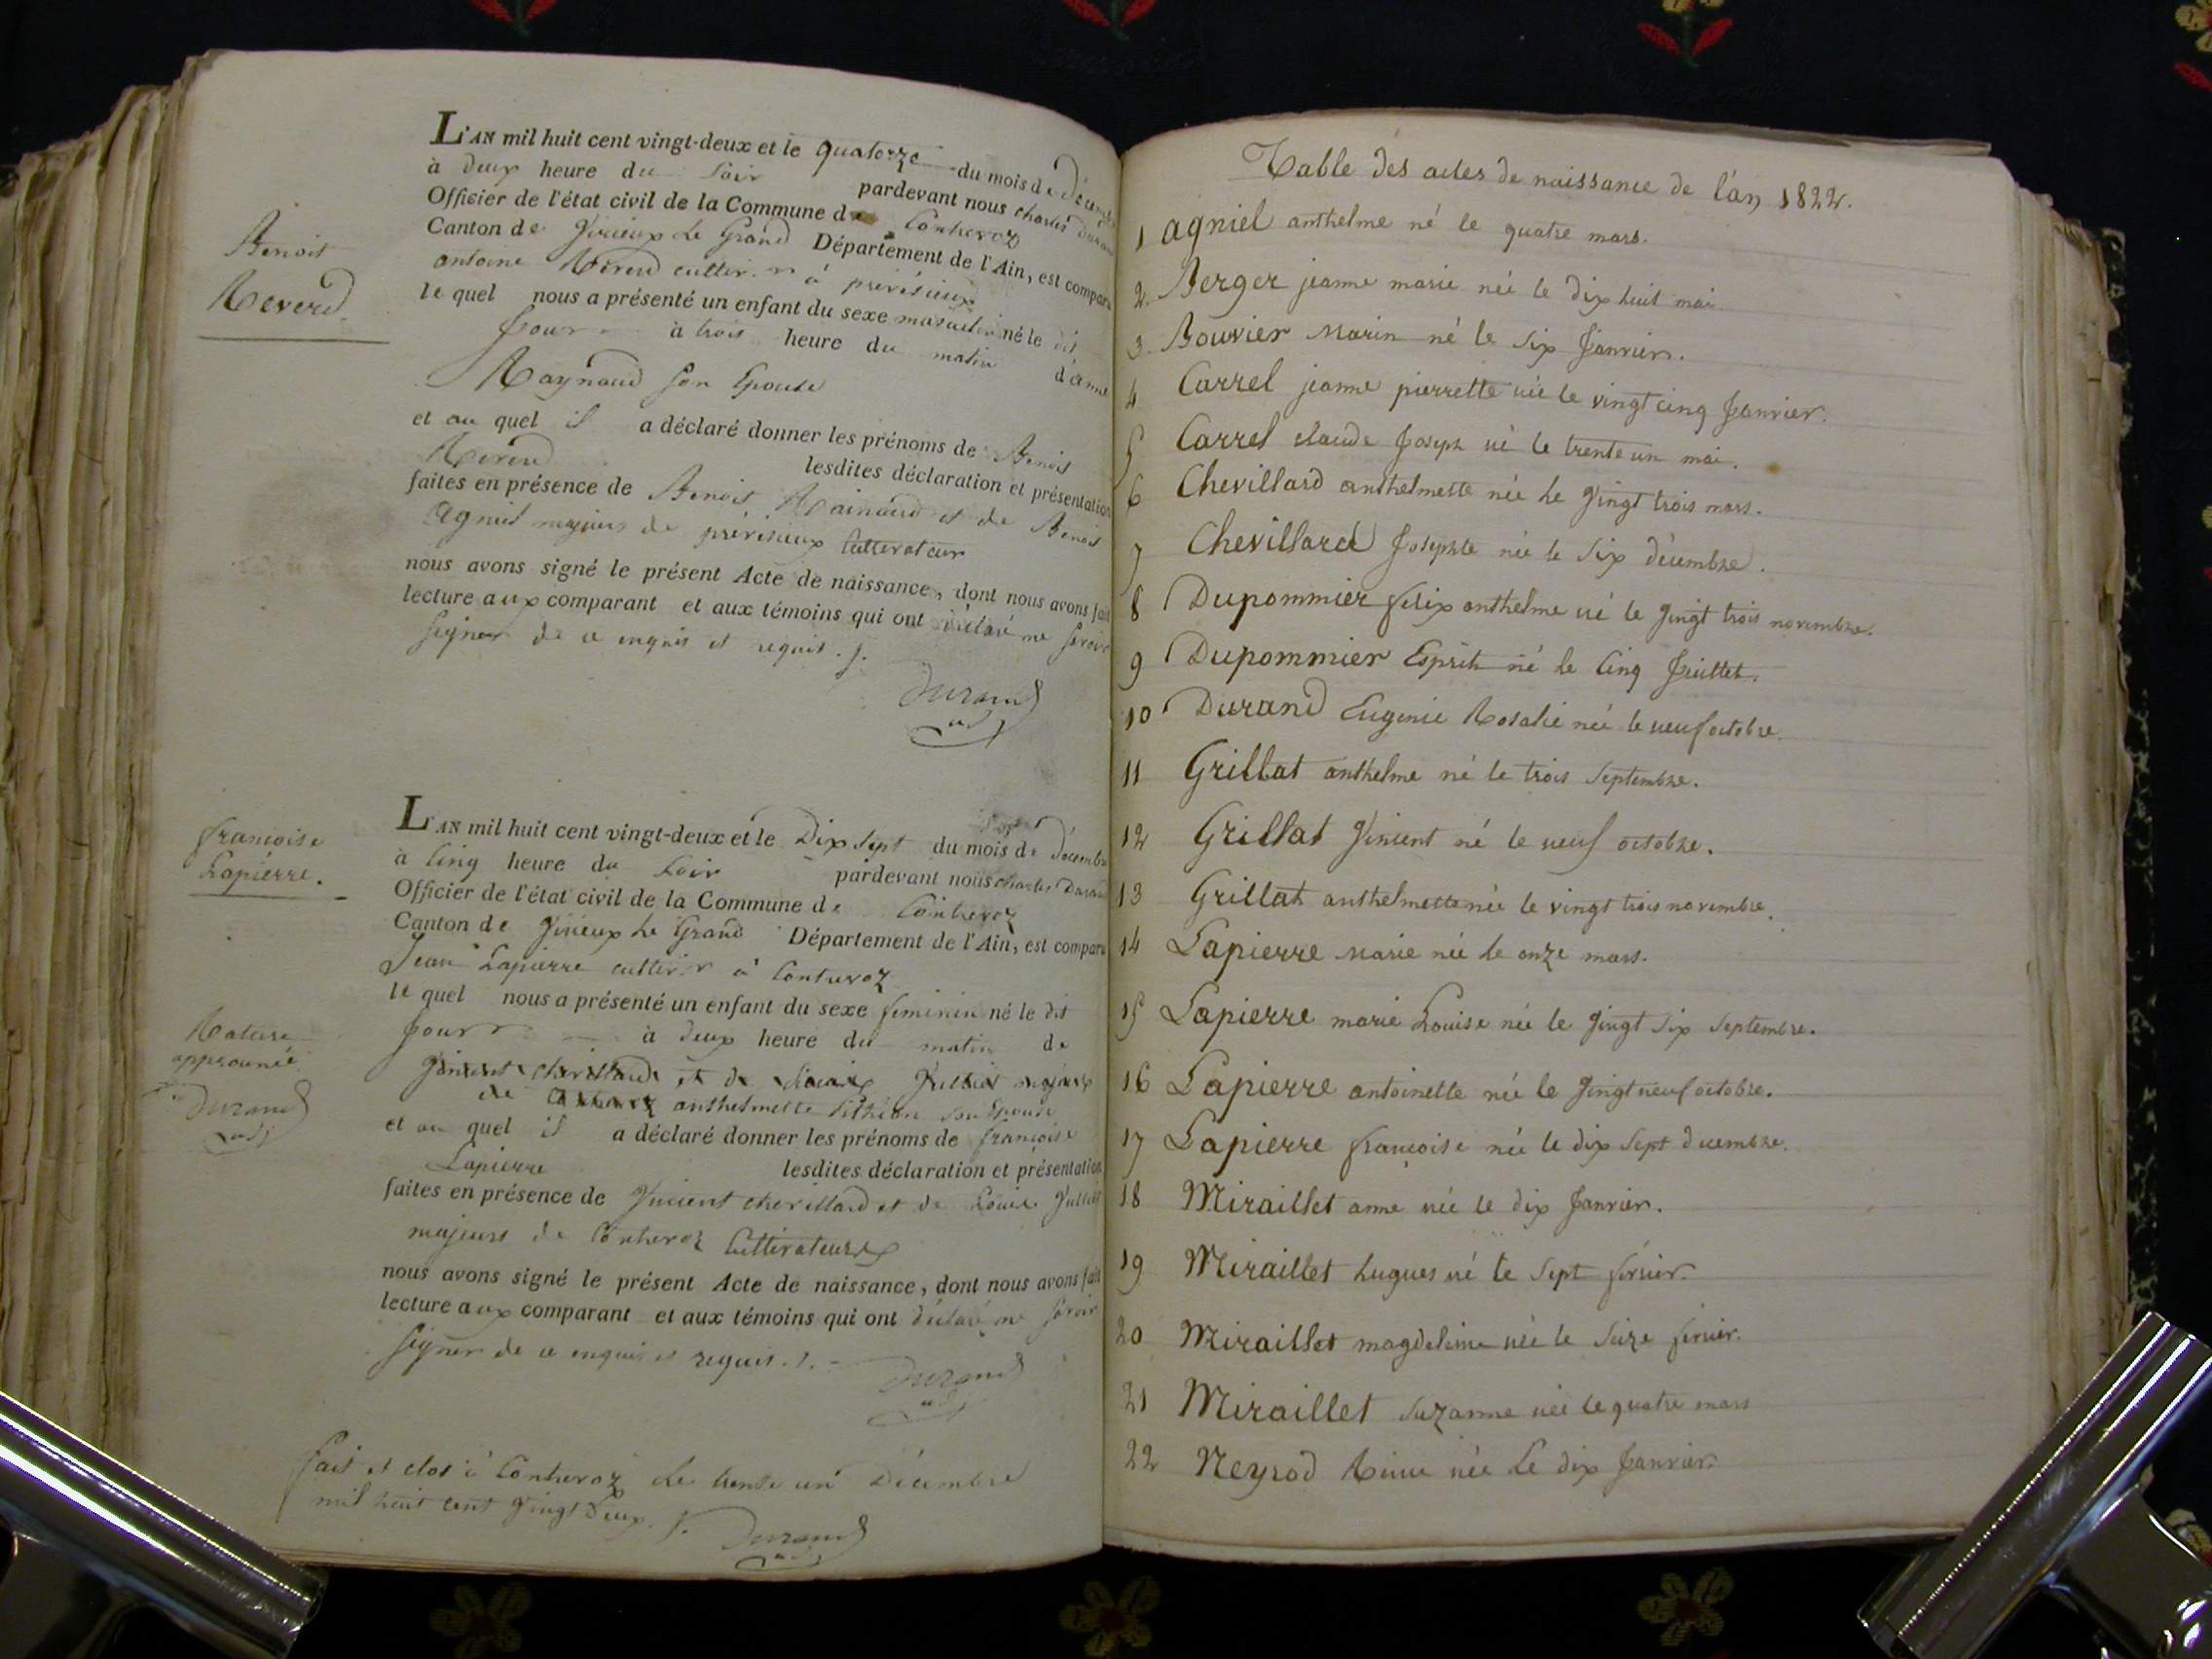 Benoit
Reverd.
L'AN mil huit cent vingt-deux et le quatorze du mois de décembre
à deux heure du soir pardevant nous charles Durand
Officier de l'état civil de la Commune de Contrevoz
Canton de Virieux Le Grand Département de l'Ain, est comparu
antoine Reverd à prévésieux
le quel nous a présenté un enfant du sexe masculin né le dit
jour à trois heure du matin d'anne
Raynaud son Epouse
et au quel il a déclaré donner les prénoms de Benoit
Reverd lesdites déclaration et présentation
faites en présence de Benoit Rainaud et de Benoit
Agniel majeurs de prévésieux
nous avons signé le présent Acte de naissance, dont nous avons fait
lecture aux comparant et aux témoins qui ont déclaré ne savoir
signer de ce enquis et requis.
Durand
françoise
Lapierre.
L'AN mil huit cent vingt-deux et le Dix sept du mois de décembre
à cinq heure du soir pardevant nous charles Durand
Officier de l'état civil de la Commune de Contrevoz
Canton de Virieux Le Grand Département de l'Ain, est comparu
Jean Lapierre à Contrevoz
le quel nous a présenté un enfant du sexe feminin né le dit
jour à deux heure du matin de
Vincent chevillard et de majeurs
de anthelmette son Epouse
Rature
approuvée
Durand
et au quel il a déclaré donner les prénoms de françoise
Lapierre lesdites déclaration et présentation
faites en présence de Vincent chevillard et de Louis
majeurs de Contrevoz
nous avons signé le présent Acte de naissance, dont nous avons fait
lecture aux comparant et aux témoins qui ont déclaré ne savoir
signer de ce enquis et requis.
Durand
fait et clos à Contrevoz le trente un Décembre
mil huit cent vingt Deux.
Durand
Table des actes de naissance de l'an 1822.
1 agniel anthelme né le quatre mars.
2. Berger jeanne marie née le dix huit mai.
3. Bouvier Marin né le six Janvier.
4 Carrel jeanne pierrette née le vingt cinq Janvier.
5 Carrel claude Joseph né le trente un mai.
6 Chevillard anthelmette née le vingt trois mars.
7 Chevillard Josephte née le six décembre.
8 Dupommier felix anthelme né le vingt trois novembre.
9 Dupommier Esprit né le cinq Juillet.
10 Durand Eugenie Rosalie née le neuf octobre.
11 Grillat anthelme né le trois septembre.
12 Grillat Vincent né le neuf octobre.
13 Grillat anthelmette née le vingt trois novembre.
14 Lapierre Marie née le onze mars.
15 Lapierre marie Louise née le vingt six septembre.
16 Lapierre antoinette née le vingt neuf octobre.
17 Lapierre françoise née le dix sept decembre.
18 Miraillet anne née le dix Janvier.
19 Miraillet hugues né le sept fevrier.
20 Miraillet magdeleine née le seize fevrier.
21 Miraillet suzanne née le quatre mars
22 Neyrod née Le dix Janvier.